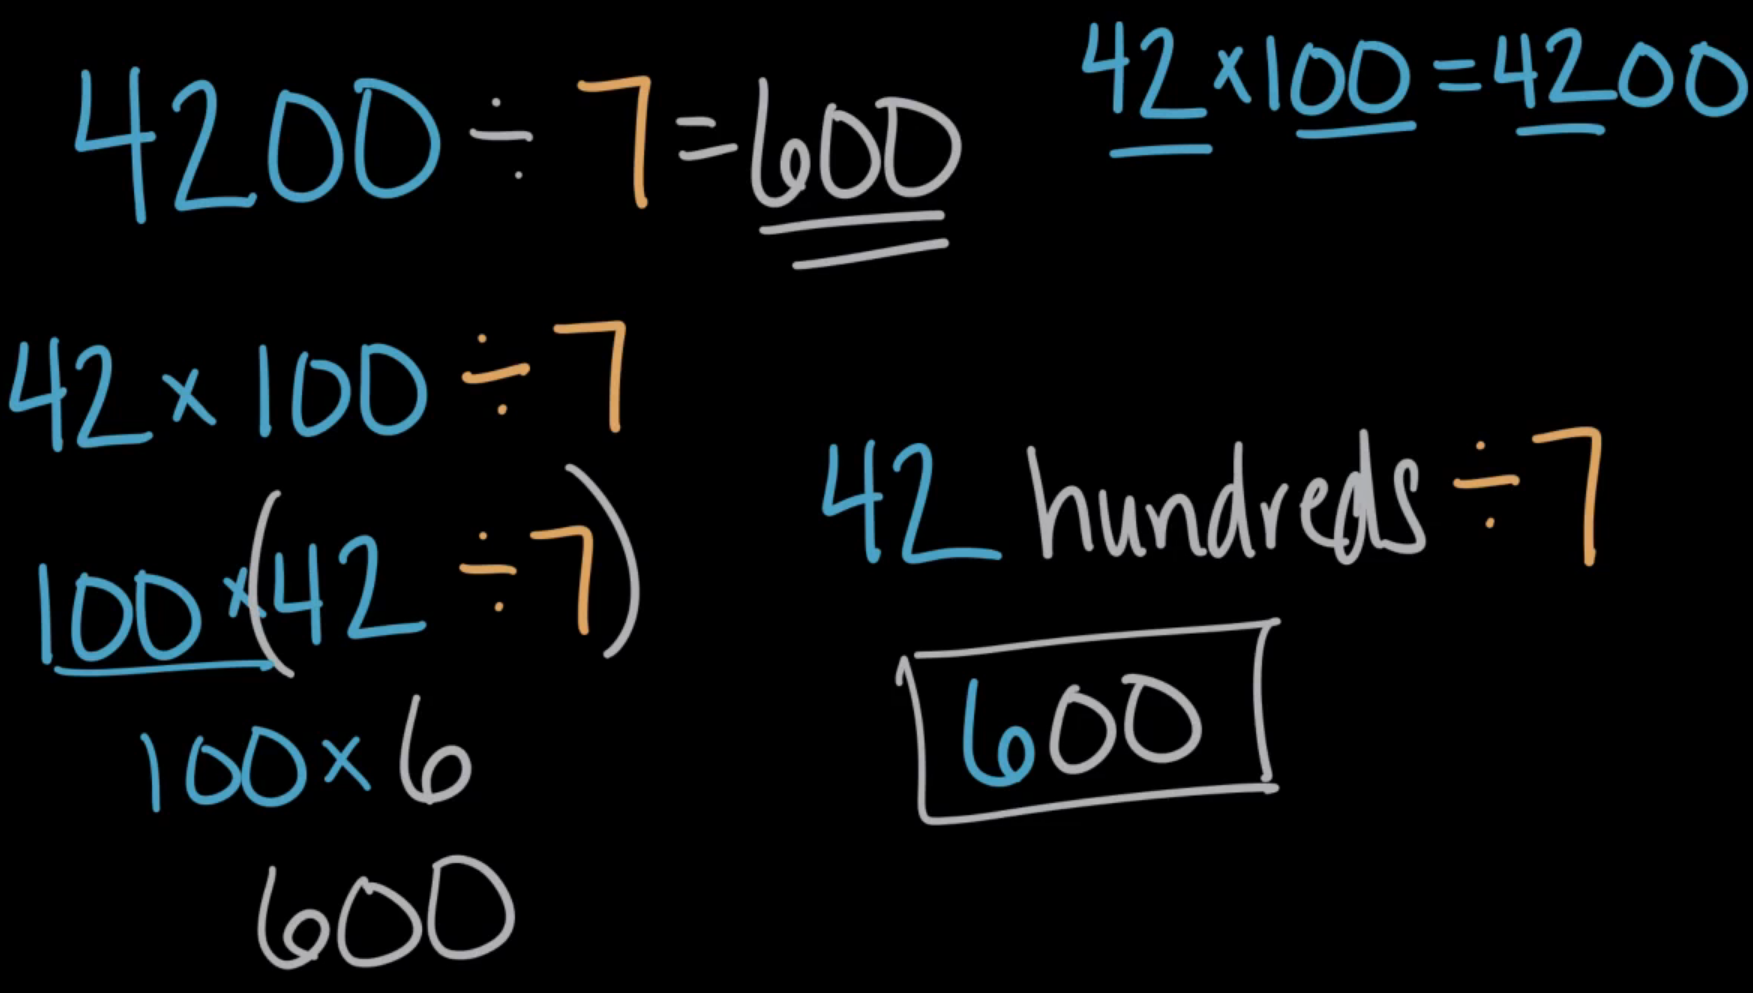 4200 ÷ 7 = 600
42 × 100 = 4200
42 × 100 ÷ 7
100 × (42 ÷ 7)
100 × 6
600
42 hundreds ÷ 7
600